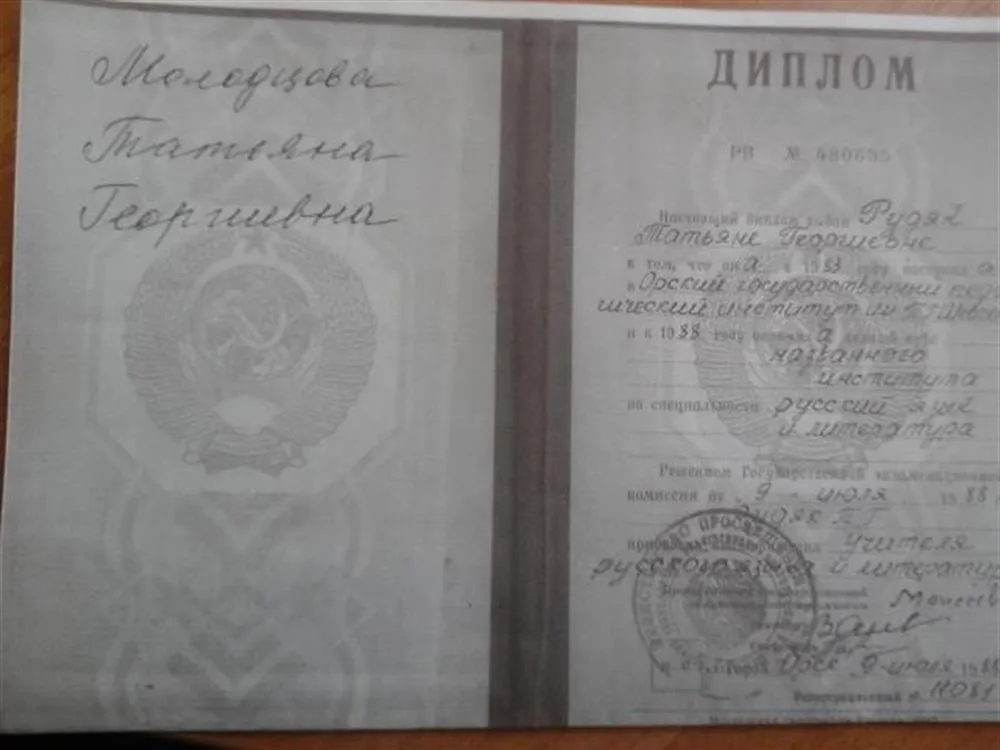 Молодцова
Татьяна
Георгиевна
ДИПЛОМ
РВ № 480695
Настоящий диплом выдан Рудяк
Татьяне Георгиевне
в том, что она в 1983 году поступила
в Орский государственный пед
ический институт им Т.Г. Шевч
и в 1988 году окончила полный курс
названного
института
по специальности русский язык
и литература
Решением Государственной экзаменационной
комиссии от 9 июля 1988
Рудяк Т.Г.
присвоена квалификация учителя
русского языка и литератур
Город Орск 9 июля 1988
Регистрационный №